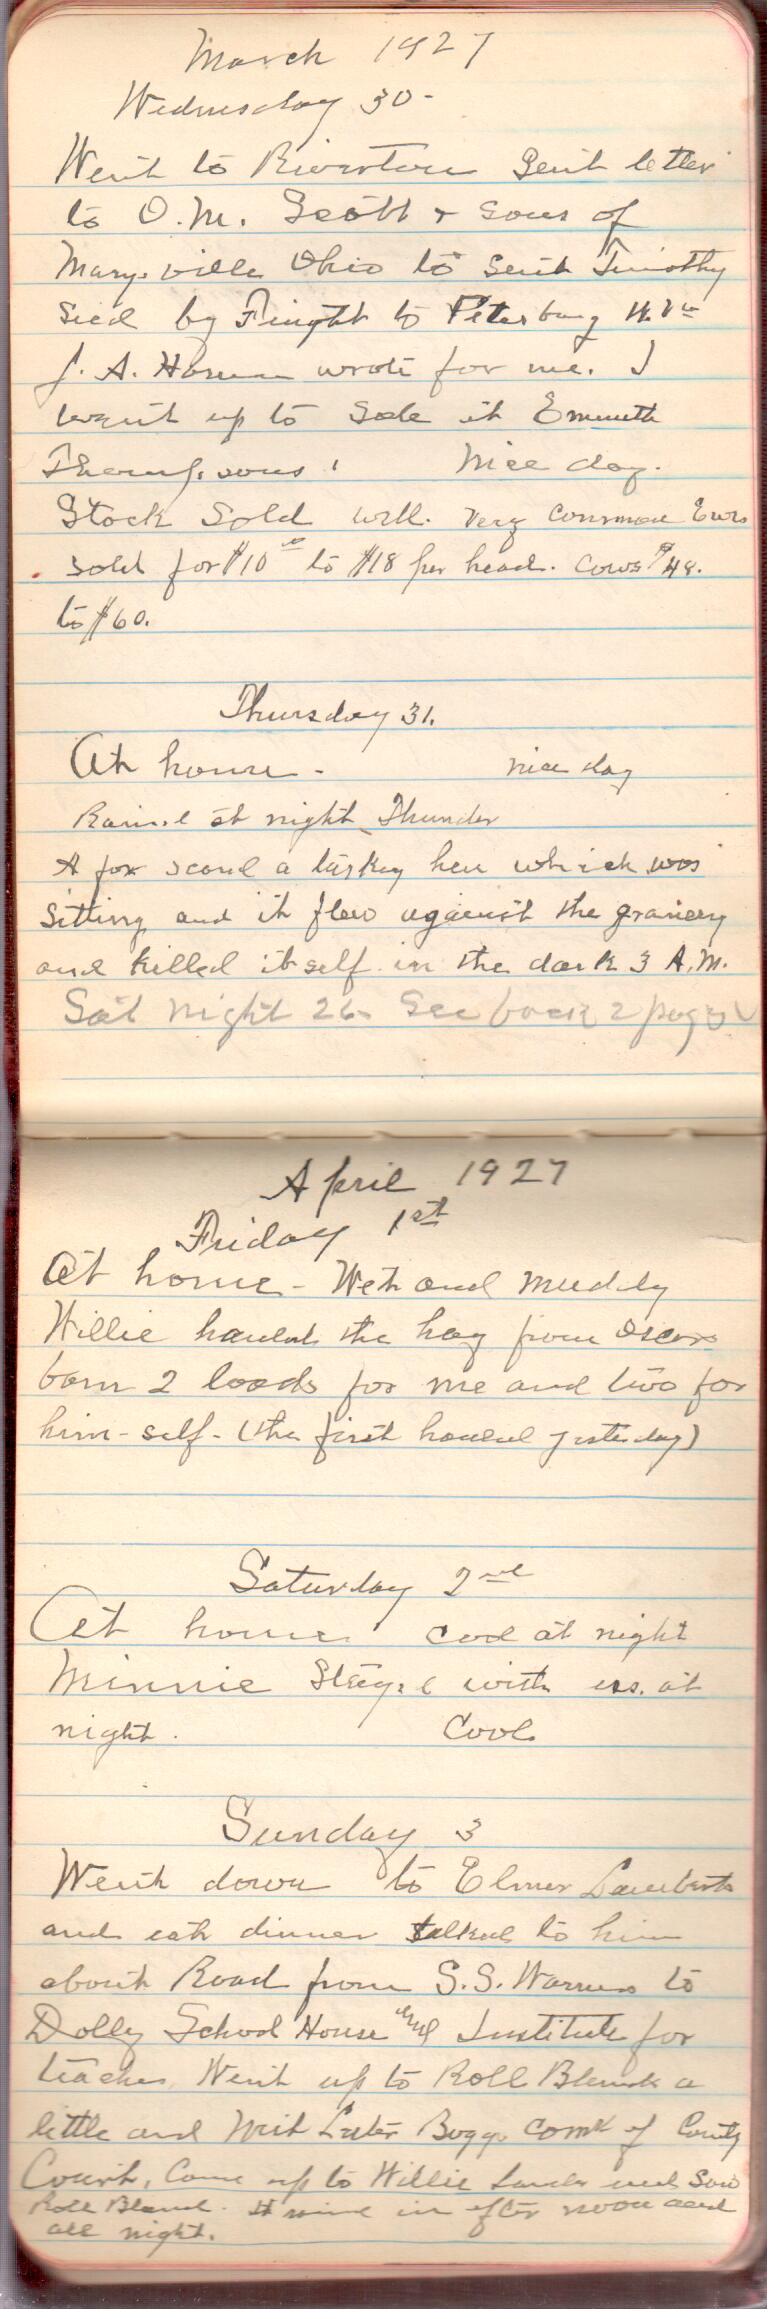 March 1927
Wednesday 30-
Went to Riverton Sent letter
to O.M. Scott & Sons of
Marysville Ohio to Send Timothy
Seed by Freight to Petersburg W.Va
J. A. Harman wrote for me. I
went up to Sale at Emmeth
Thompsons! Nice day.
Stock Sold well. Very common Ews
sold for $10 00 to $18 per head. Cows $48.
to $60.
Thursday 31.
At home - nice day
Rained at night Thunder
A fox scard a turkey hen which was
Sitting and it flew against the granery
and killed itself in the dark 3 A.M.
Sat night 26- See back 2 pages
April 1927
Friday 1st
At home - Wet and muddy
Willie hauled the hay from Oscars
barn 2 loads for me and two for
him-self- (the first hauled yesterday)
Saturday 2nd
At home cool at night
Minnie Stayed with us. at
night. Cool.
Sunday 3
Went down to Elmer Lamberts
and eat dinner talked to him
about Road from S.S. Warners to
Dolly School House and Institute for
teacher. Went up to Roll Bland a
little and Luter Boggs Comr of County
Court, Came up to Willie and Saw
Roll Bland. It in after noon and
all night.